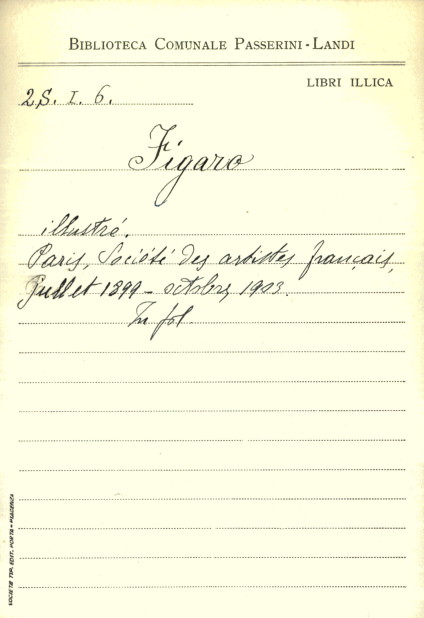 BIBLIOTECA COMUNALE PASSERINI-LANDI
LIBRI ILLICA
2S. I. 6.
Figaro
illustré.
Paris, Société des artistes français,
Juillet 1899 - octobre 1903.
In fol.
SOCIETÀ TIP. EDIT. PORTA - PIACENZA